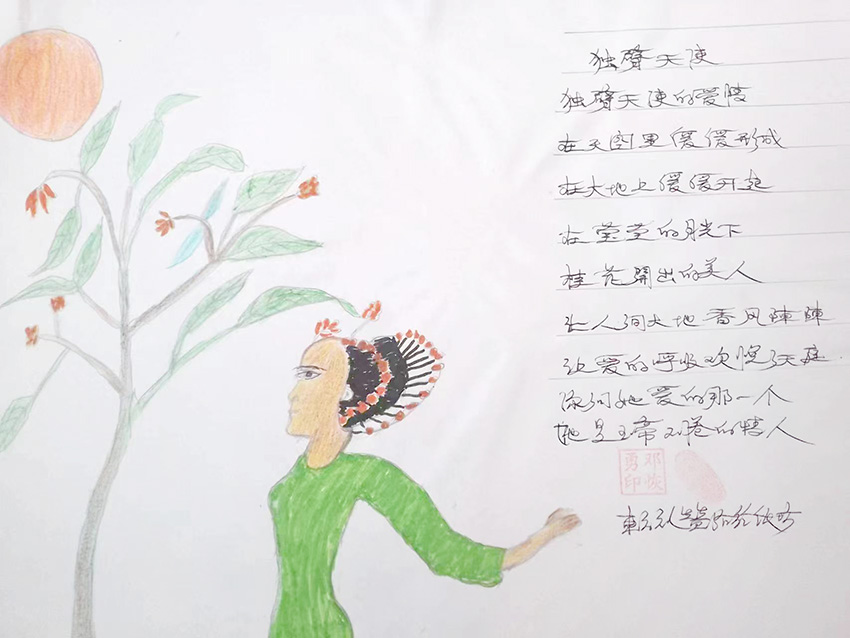 独臂天使
独臂天使的爱情
在天空里缓缓形成
在大地上缓缓开起
在莹莹的月光下
桂花開出的美人
让人间大地香风陣陣
让爱的呼吸欢悦天庭
她爱的那一个
她是帝的情人
邓恢勇印